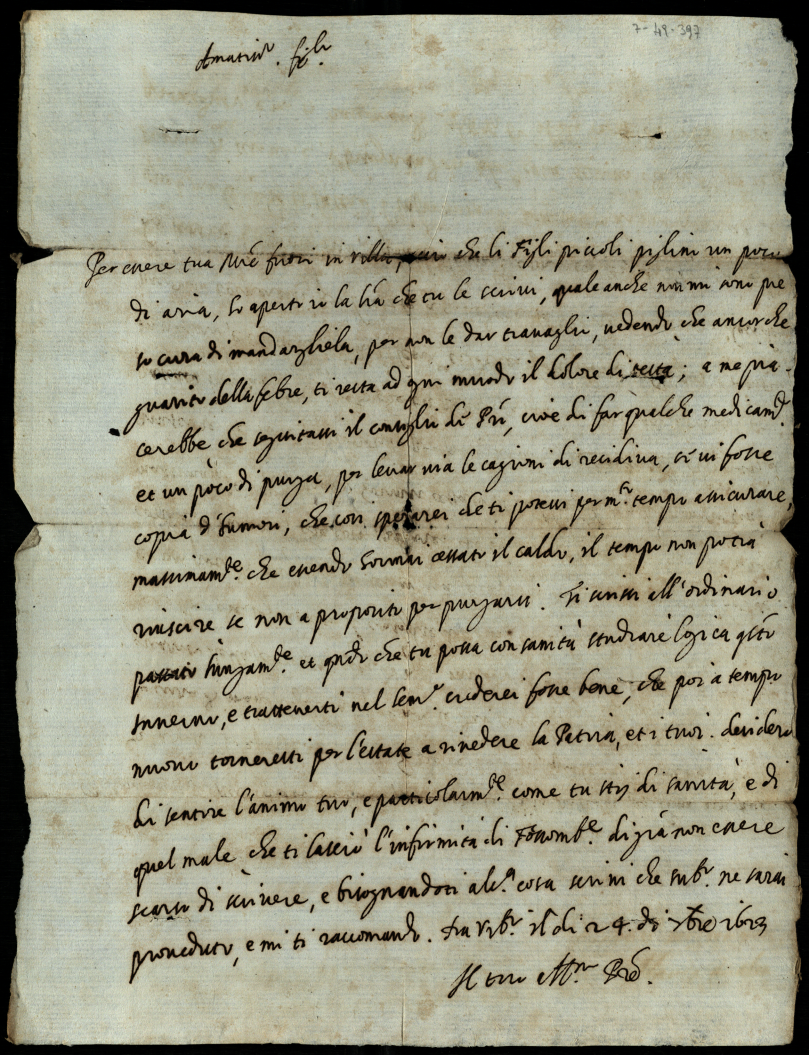 7-49-397
Amatis.mo fil.
Per essere tua M.re fuori in villa, acciò che li Figli piccioli piglino un poco
di aria, ho aperto io la l.ra che tu le scrivi, quale anche non mi sono pre
so cura di mandargliela, per non le dar travagli, vedendo che ancorche
guarito della febre, ti resta ad ogni muodo il dolore di testa; a me pia-
cerebbe che seguitassi il consiglio di P.ri, cioè di far qualche medicam.to
et un pòco di purga, per levar via le cagioni di recidiva, se vi fosse
copia d'humori, che così sperarei che ti potessi per m.to tempo assicurare,
massimam.te che essendo hormai cessato il caldo, il tempo non potrà
riuscire se non a proposito per purgarsi. Ti scrissi all'ordinario
passato lungam.te et q.ndo che tu possa con sanità studiare logica q.sto
Inverno, e trattenerti nel Sem.o crederei fosse bene, che poi a tempo
nuovo torneresti per l'estate a rivedere la Patria, et i tuoi. desidero
di sentire l'animo tuo, e particolarm.te come tu stij di sanità, e di
quel male che ti lasciò l'infirmità di di già non essere
scarso di scrivere, e bisognandoti alc.a cosa scrivi che sub.o ne sarai
proveduto, e mi ti raccomando. Da Urb.o il dì 24 di 7bre 1623
Il tuo Aff.mo P.re